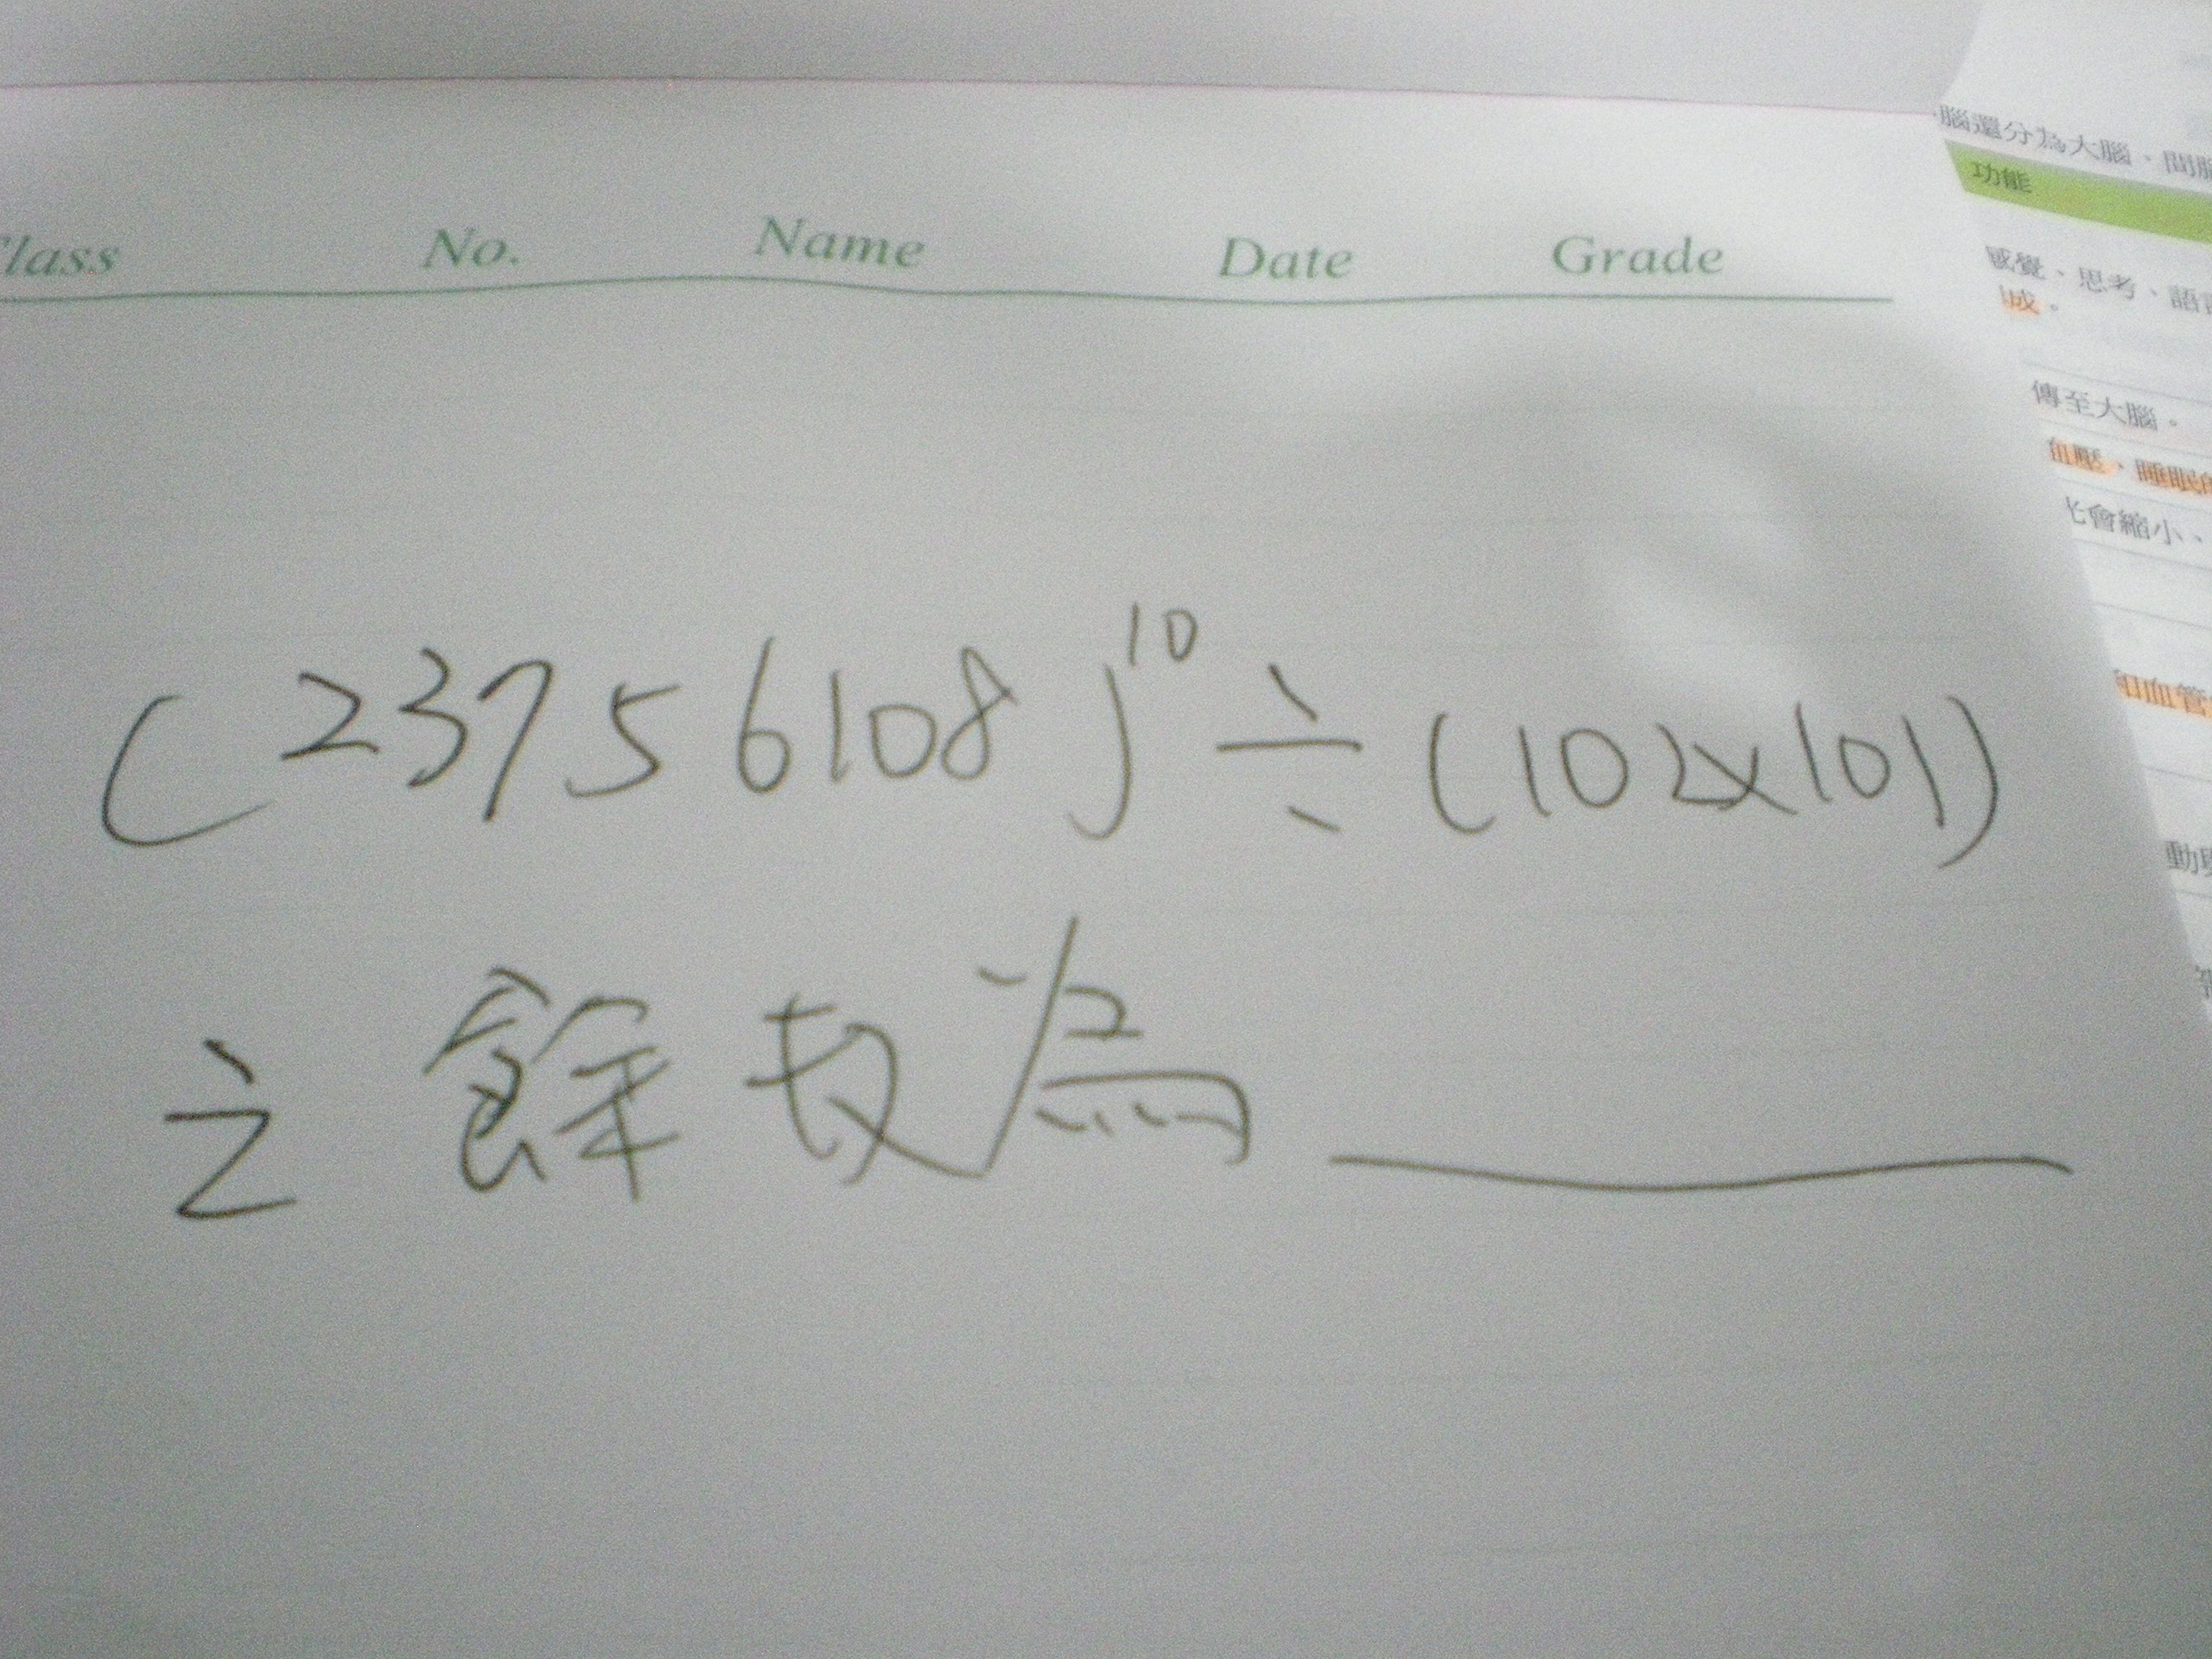 Class No. Name Date Grade
(23756108)¹⁰÷(102×101)
之餘数為
腦還分為大腦、間腦
功能
感覺、思考、語言
成。
傳至大腦。
血壓、睡眠
光會縮小、
和血管
動